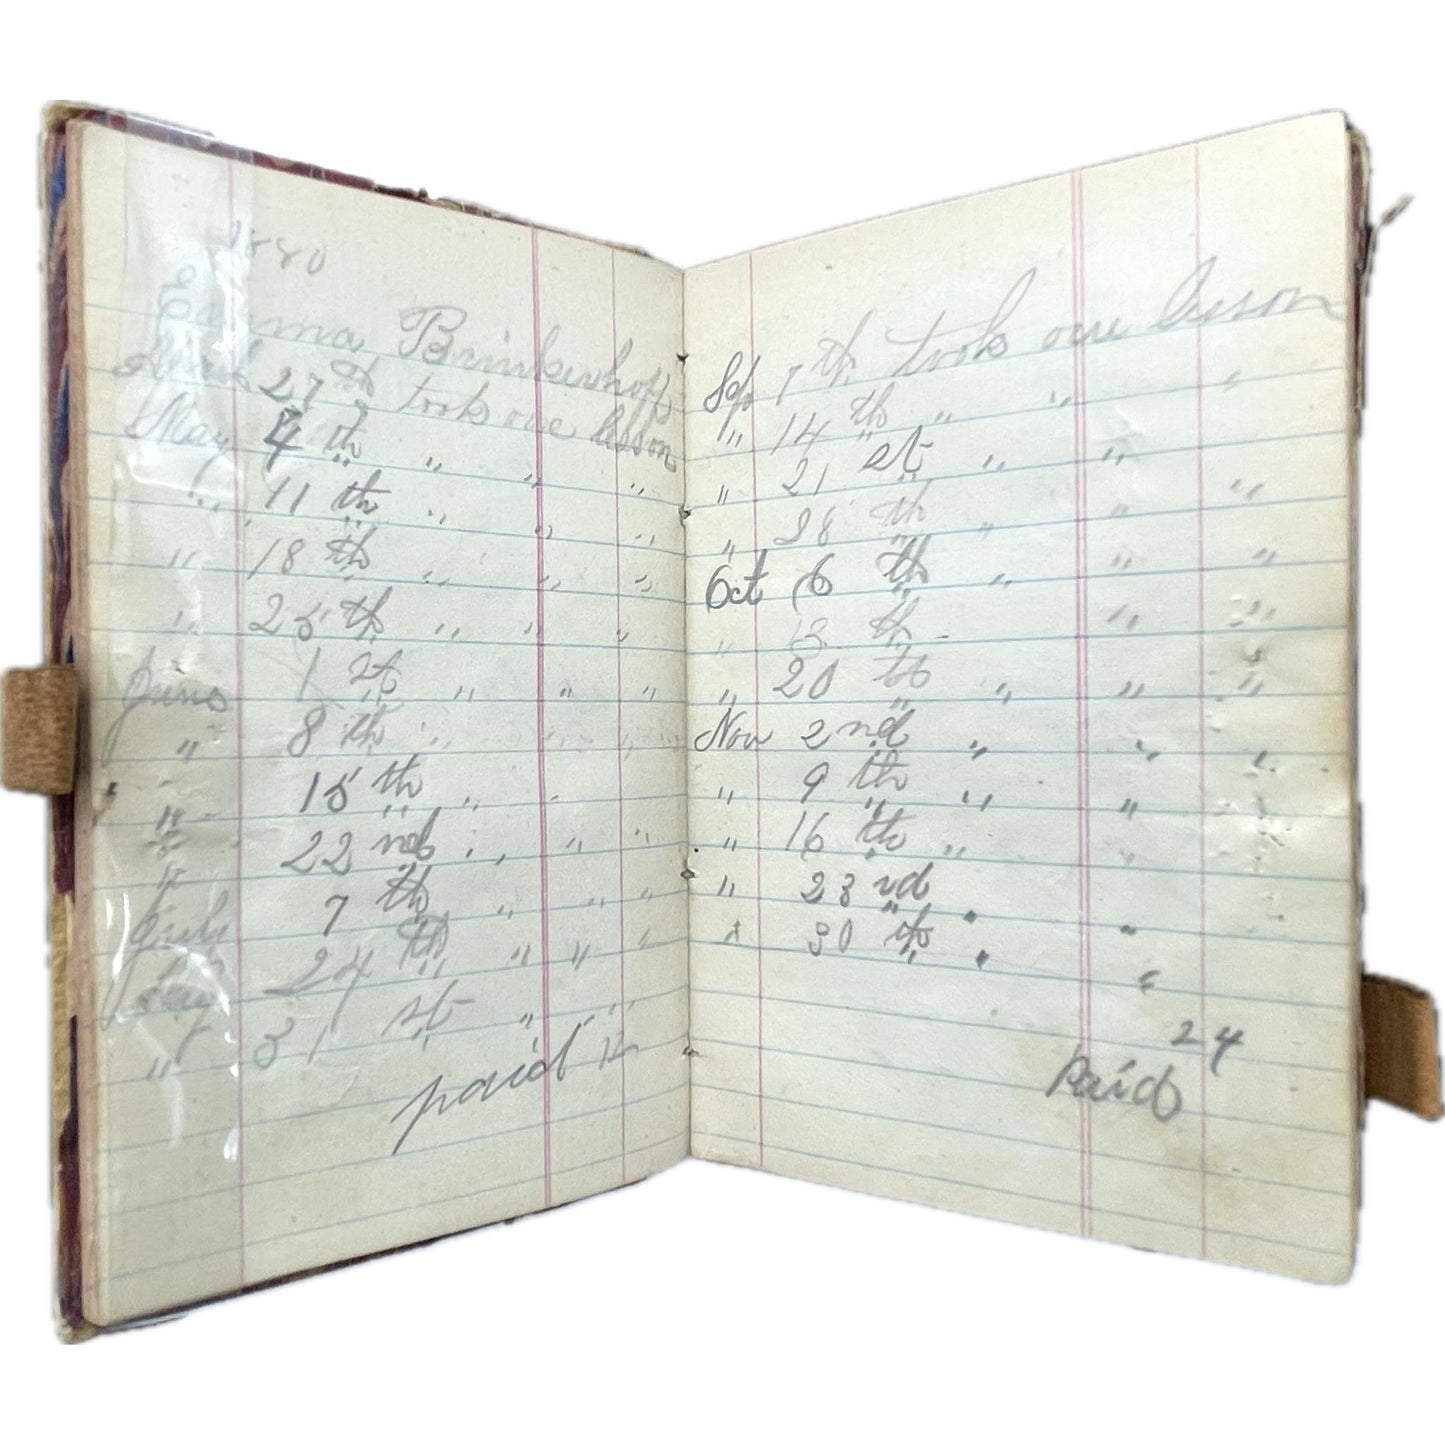 1880
Emma Brinkerhoff
27th took one lesson
May 4th " " "
" 11th " " "
" 18th " " "
" 25th " " "
June 1st " " "
" 8th " " "
" 15th " "
" 22nd " " "
July 7th " " "
24th " " "
" 31st " "
paid 12
Sep 7th took one lesson
" 14th " " "
" 21st " "
" 28th " " "
Oct 6th " " "
" 13th " "
" 20th " " "
Nov 2nd " " "
" 9th " "
" 16th "
" 23rd "
" 30th " "
24
Paid